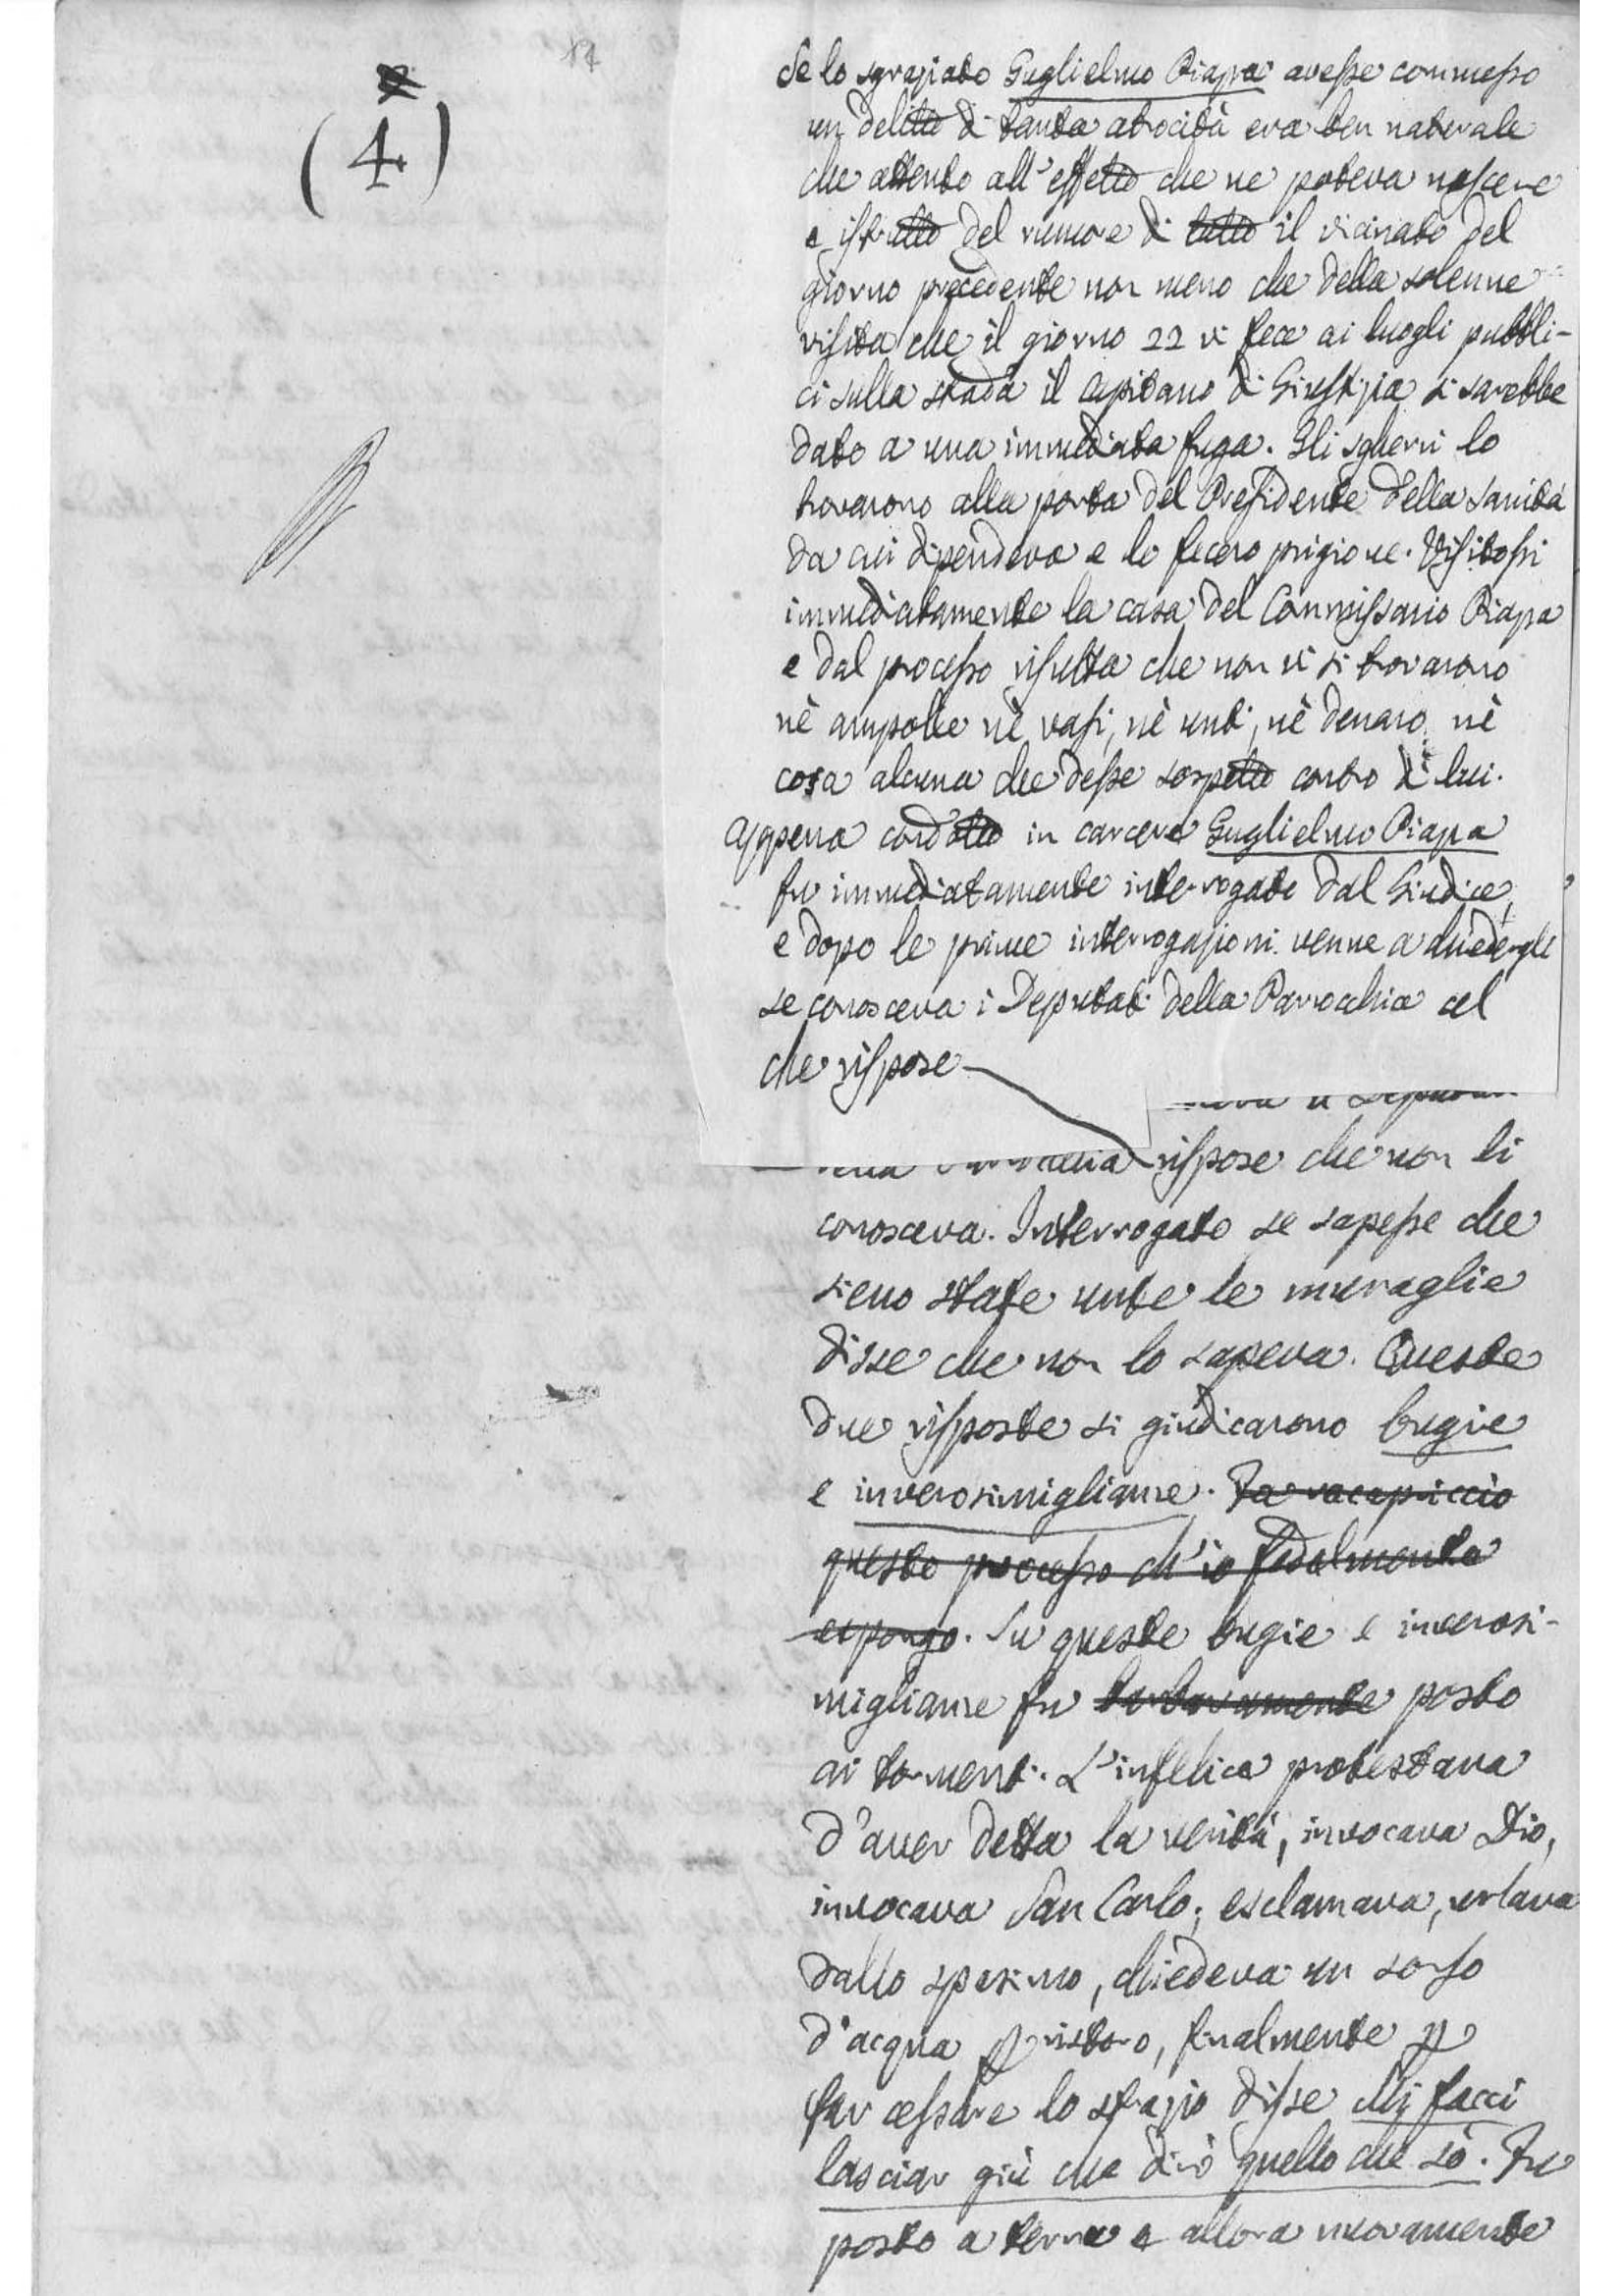 17
(4)
Se lo sgraziato Guglielmo Piazza avesse commesso
un delitto di tanta atrocità era ben naturale
che attento all'effetto che ne poteva nascere
e istrutto del rumore di tutto il vicinato del
giorno precedente non meno che della solenne
visita che il giorno 22 vi fece ai luoghi pubbli-
ci sulla strada il Capitano di Giustizia si sarebbe
dato a una immediata fuga. Gli sgherri lo
trovarono alla porta del Presidente della Sanità
da cui dipendeva e lo fecero prigione. Visitossi
immediatamente la casa del Commissario Piazza
e dal processo risulta che non vi si trovarono
nè ampolle nè vasi, nè unti, nè denaro, nè
cosa alcuna che desse sospetto contro di lui.
Appena condotto in carcere Guglielmo Piazza
fu immediatamente interrogato dal Giudice,
e dopo le prime interrogazioni venne a chiedergli
se conosceva i Deputati della Parrocchia al
che rispose
rispose che non li
conosceva. Interrogato se sapesse che
sieno state unte le muraglie
disse che non lo sapeva. Queste
due risposte si giudicarono bugie
e inverosimiglianze. Fa raccapriccio
questo processo ch'io fedelmente
espongo. Su queste bugie e inverosi-
miglianze fu barbaramente posto
ai tormenti. L'infelice protestava
d'aver detta la verità, invocava Dio,
invocava San Carlo, esclamava, urlava
dallo spasimo, chiedeva un sorso
d'acqua p ristoro, finalmente p
far cessare lo strazio disse Mi facci
lasciar giù che dirò quello che sò. Fu
posto a terra e allora nuovamente